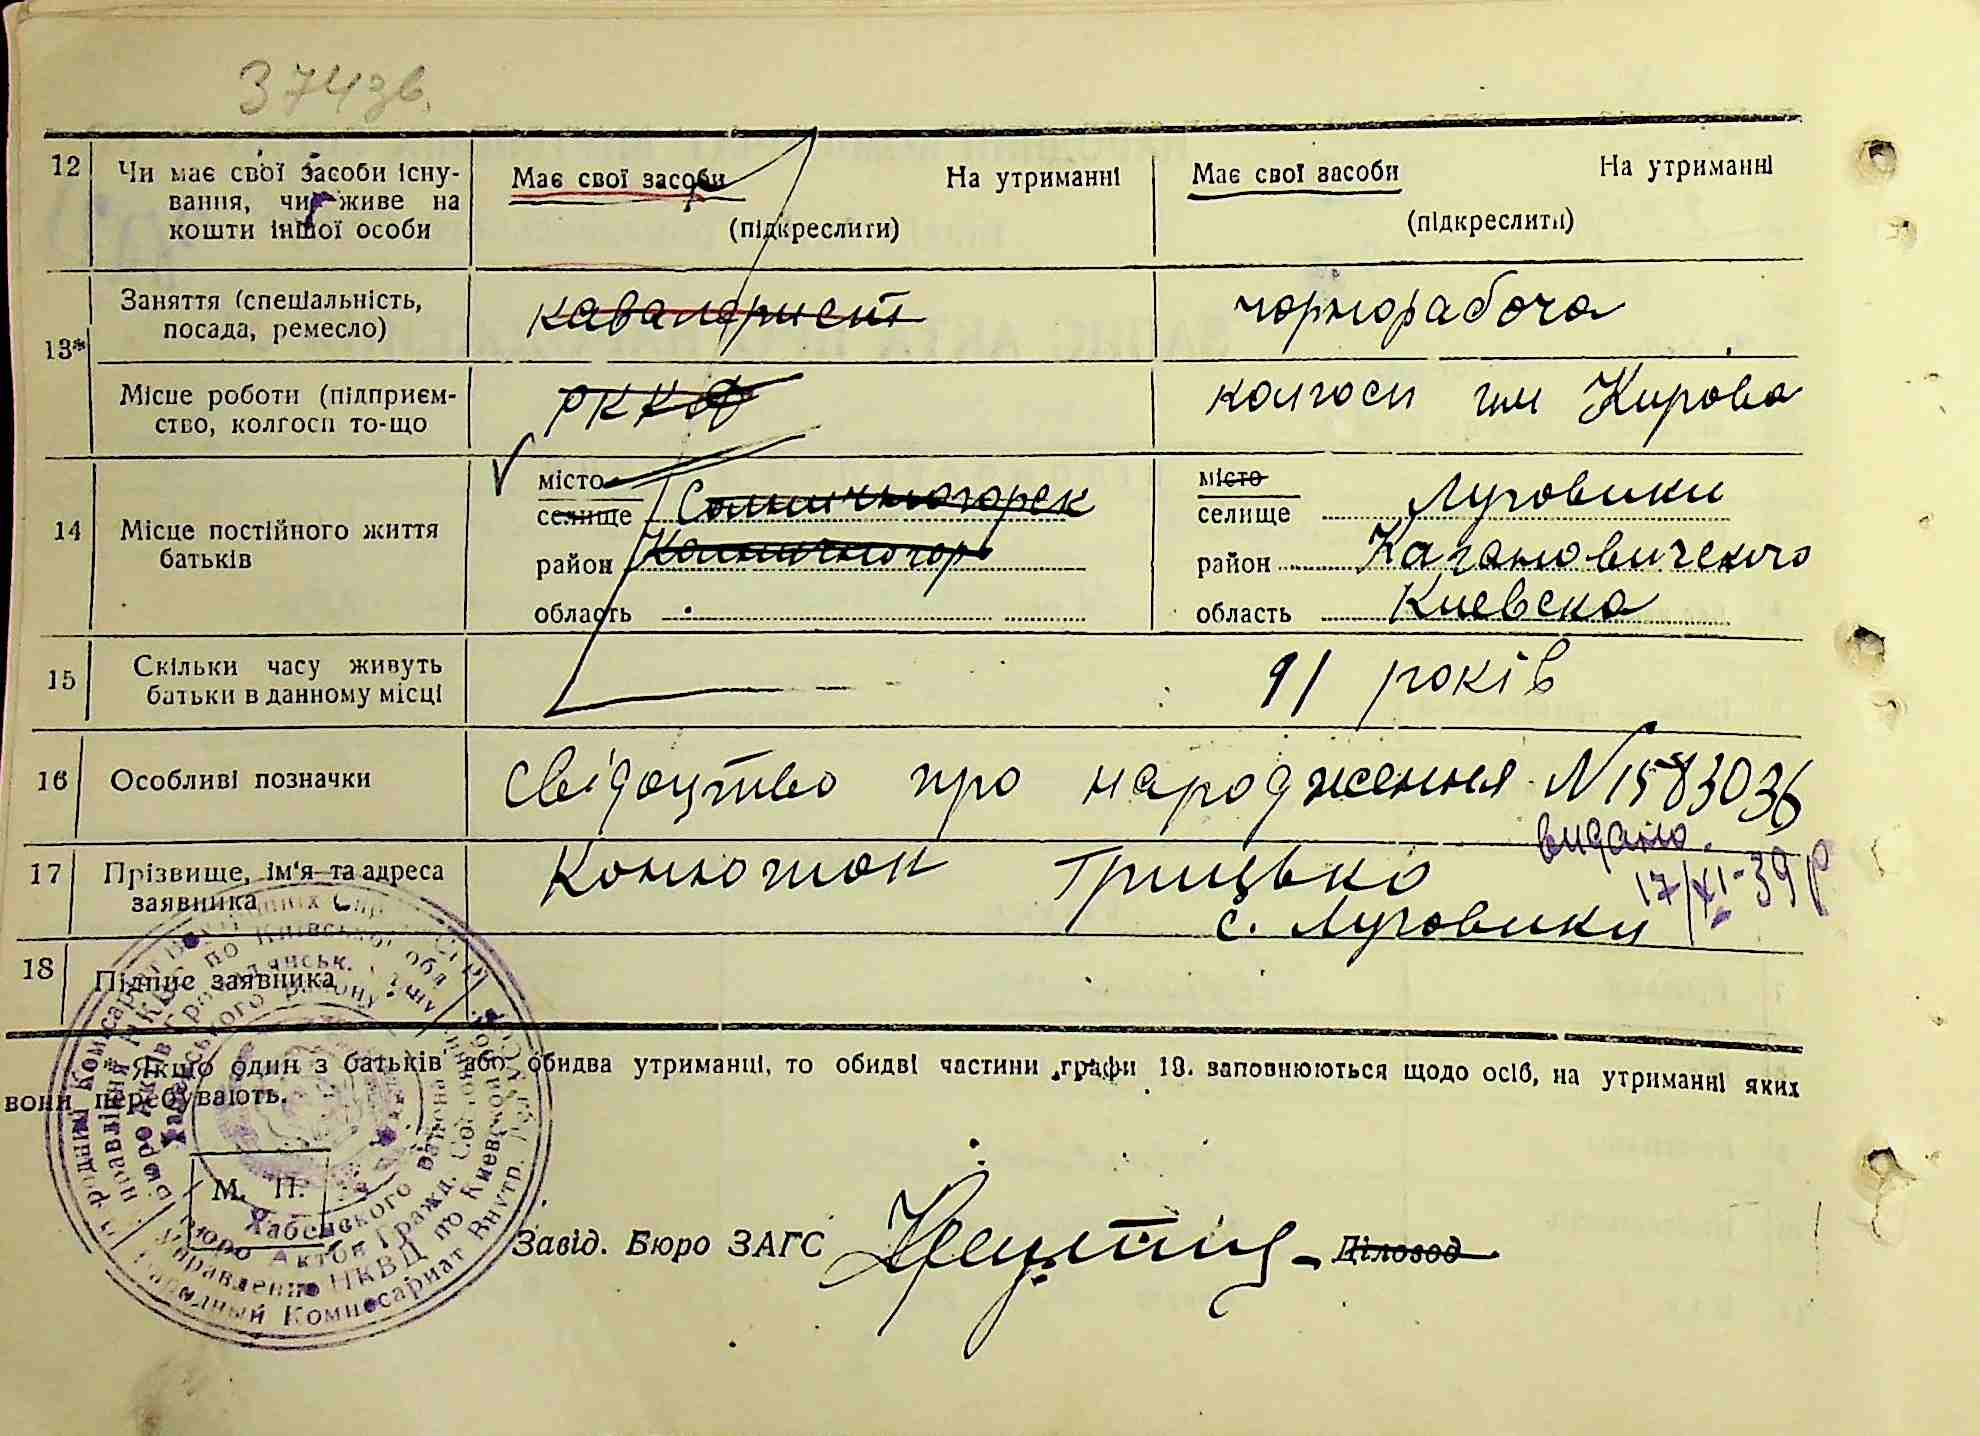 374зв.
12 Чи має свої засоби існу-
вання, чи живе на
кошти іншої особи
Має свої засоби На утриманні
(підкреслити)
Має свої засоби На утриманні
(підкреслити)
13* Заняття (спеціальність,
посада, ремесло)
кавалерист
чорнорабоча
Місце роботи (підприєм-
ство, колгосп то-що
РККА
колгосп им Кирова
14 Місце постійного життя
батьків
місто
селище Солничногорск
район
область
місто
селище Луговики
район Кагановичского
область Киевска
15 Скільки часу живуть
батьки в данному місці
91 років
16 Особливі позначки
свідоцтво про народження N 1583036
видано
17/XI-39 р
17 Прізвище, ім'я та адреса
заявника
Конюшок Грицько
с. Луговики
18 Підпис заявника
Якщо один з батьків або обидва утриманці, то обидві частини графи 13. заповнюються щодо осіб, на утриманні яких
вони перебувають.
М. П.
Завід. Бюро ЗАГС
Діловод
Хабенского района
Бюро Актов Гражд.
Управлению НКВД по Киевской
Народный Комиссариат Внутр.